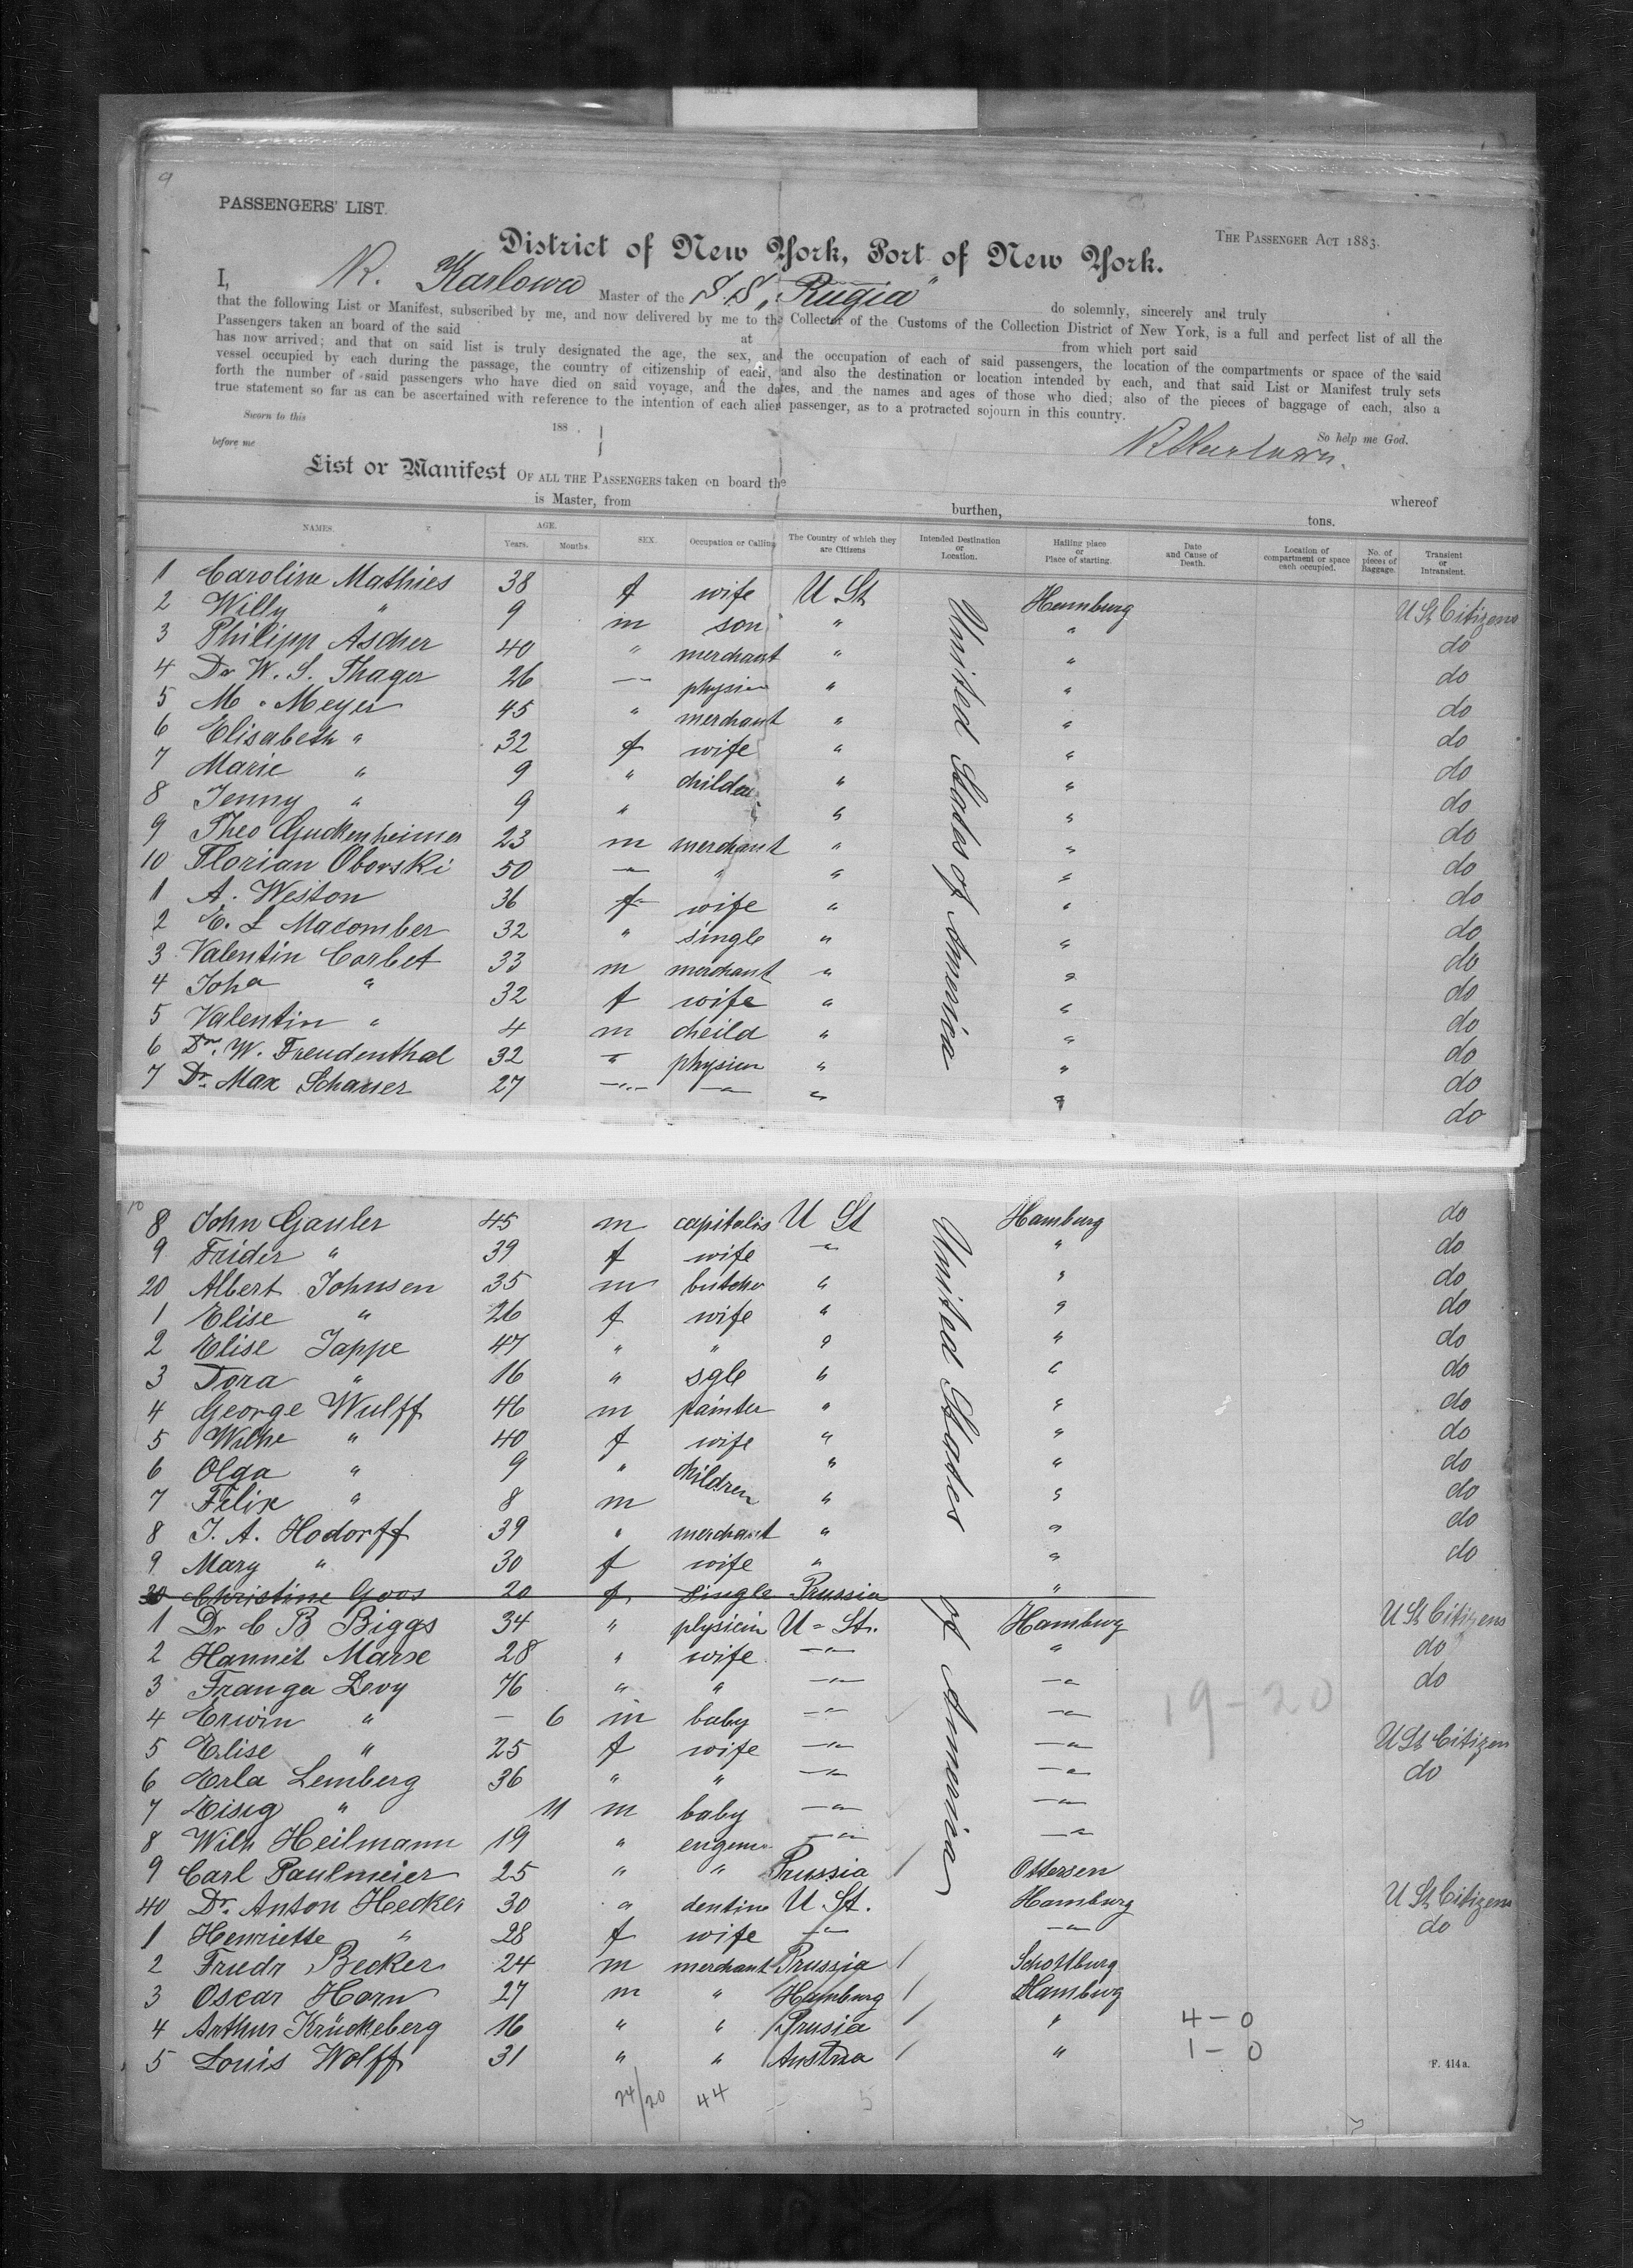 9
PASSENGERS' LIST.
THE PASSENGER ACT 1883.
District of New York, Port of New York.
I, R. Karlowa Master of the S.S. „Rugia" do solemnly, sincerely and truly
that the following List or Manifest, subscribed by me, and now delivered by me to the Collector of the Customs of the Collection District of New York, is a full and perfect list of all the
Passengers taken an board of the said at from which port said
has now arrived; and that on said list is truly designated the age, the sex, and the occupation of each of said passengers, the location of the compartments or space of the said
vessel occupied by each during the passage, the country of citizenship of each, and also the destination or location intended by each, and that said List or Manifest truly sets
forth the number of said passengers who have died on said voyage, and the dates, and the names and ages of those who died; also of the pieces of baggage of each, also a
true statement so far as can be ascertained with reference to the intention of each alien passenger, as to a protracted sojourn in this country.
Sworn to this 188 .
So help me God.
before me
R Karlowa.
List or Manifest OF ALL THE PASSENGERS taken on board the whereof
is Master, from burthen, tons.
NAMES. AGE. Years. Months. SEX. Occupation or Calling The Country of which they are Citizens Intended Destination or Location. Hailing place or Place of starting. Date and Cause of Death. Location of compartment or space each occupied. No. of pieces of Baggage. Transient or Intransient.
United States of America
1 Caroline Mathies 38 f wife U St Hamburg U St Citizens
2 Willy " 9 m son " " do
3 Philipp Ascher 40 " merchant " " do
4 Dr W. S. Thager 26 " physien " " do
5 M. Meyer 45 " merchant " " do
6 Elisabeth " 32 f wife " " do
7 Marie " 9 " children " " do
8 Jenny " 9 " " " " do
9 Theo Guckenheimer 23 m merchant " " do
10 Florian Oborski 50 " " " " do
1 A. Weston 36 f wife " " do
2 E. L Macomber 32 " single " " do
3 Valentin Corbet 33 m merchant " " do
4 Joha " 32 f wife " " do
5 Valentin " 4 m cheild " " do
6 Dr. W. Freudenthal 32 " physien " " do
7 Dr. Max Schauer 27 " " " " do
do
10
United States of America
8 John Gauler 45 m capitalis U St Hamburg do
9 Frider " 39 f wife " " do
20 Albert Johnsen 35 m butcher " " do
1 Elise " 26 f wife " " do
2 Elise Jappe 47 " " " " do
3 Dora " 16 " sgle " " do
4 George Wulff 46 m painter " " do
5 Wilhe " 40 f wife " " do
6 Olga " 9 " children " " do
7 Felix " 8 m " " do
8 J. A. Hodorff 39 " merchant " " do
9 Mary " 30 f wife " " do
30 Christine Goos 20 f single Prussia "
1 Dr C B Biggs 34 " plysicin U = St. Hamburg U St Citizens
2 Hannit Marxe 28 " wife " " do
3 Franga Levy 76 " " " " do
4 Erwin " — 6 m baby " "
19-20
5 Elise " 25 f wife " " U St Citizen
6 Erla Lemberg 36 " " " " do
7 Eisig " 11 m baby " "
8 Wilh Heilmann 19 " engene " "
9 Carl Paulmeier 25 " " Prussia / Ottersen
40 Dr. Anton Hecker 30 " dentine U St. Hamburg U St Citizens
1 Henriette " 28 f wife " " do
2 Friedr Becker 24 m merchant Prussia / Schottburg
3 Oscar Horn 27 m " Hamburg / Hamburg
4 Arthur Krückeberg 16 " " Prusia / " 4 - 0
5 Louis Wolff 31 " " Austria / " 1 - 0
F. 414a.
24/20 44 5